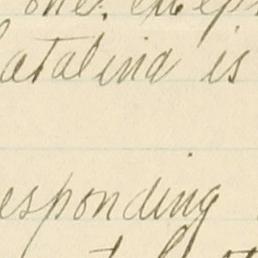 one. excep
atalina is
esponding